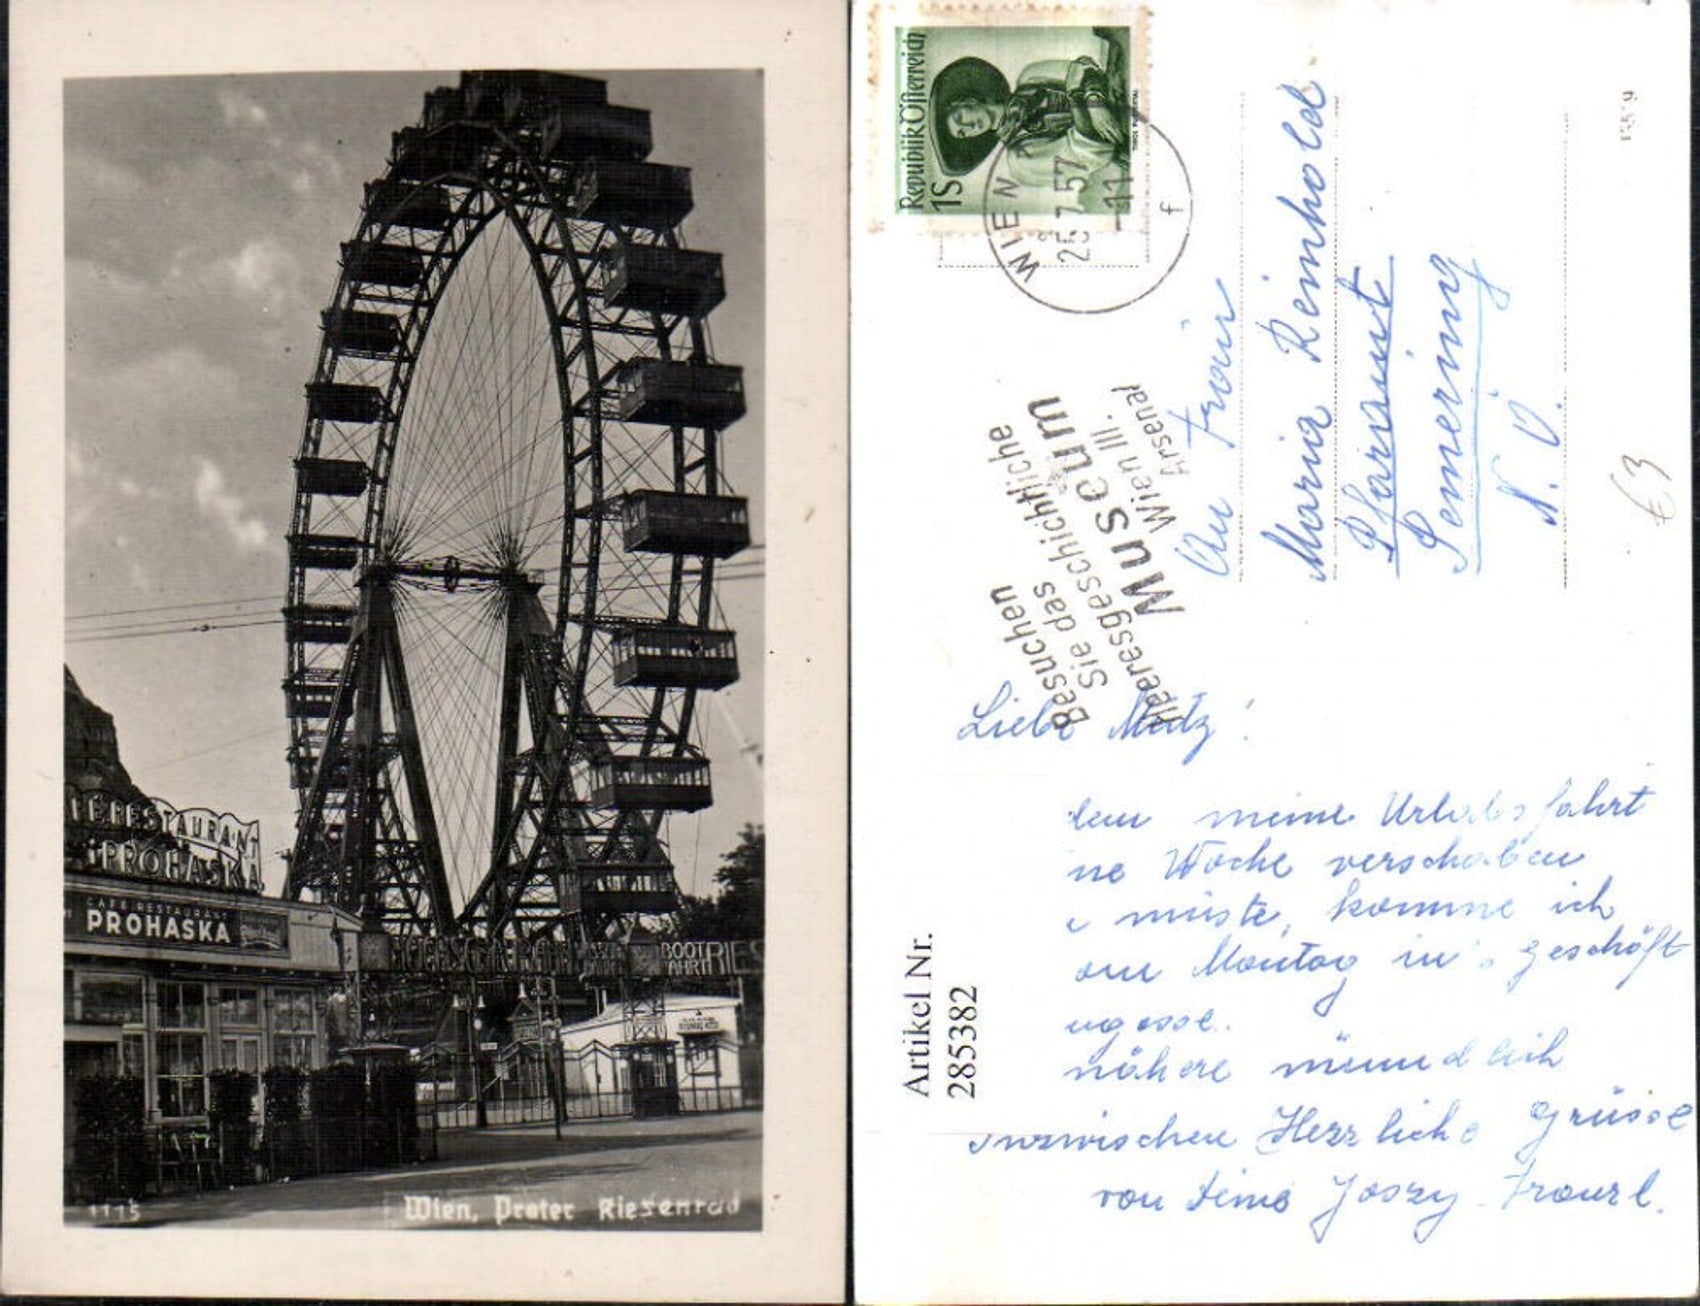 RESTAURANT
PROHASKA
CAFE RESTAURANT
PROHASKA
BOOT
FAHRT
RIES
1115
Wien, Prater Riesenrad
Republik Österreich
1S
WIEN
25 7 57 -11
f
Besuchen
Sie das
Heeresgeschichtliche
Museum
Wien III.
Arsenal
An Frau
Maria Reinhold
Semering
N. Ö.
€3
Liebe Mutz!
meine Urlaubsfahrt
ne Woche verschoben
müste, komme ich
am Montag in's Geschäft
nähere mündlich
inzwischen Herzliche Grüsse
von Joszy
Artikel Nr.
285382